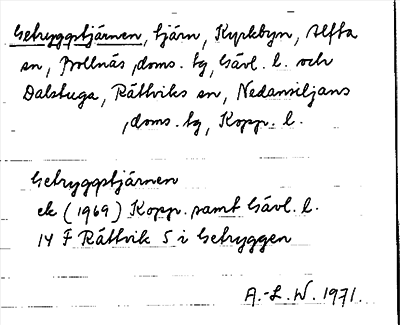 Getryggstjärnen, tjärn, Kyrkbyn, Alfta
sn, Bollnäs doms. tg, Gävl. l. och
Dalstuga, Rättviks sn, Nedansiljans
doms. tg, Kopp. l.
Getryggstjärnen
ek (1969) Kopp. samt Gävl. l.
14 F Rättvik 5 i Getryggen
A.-L. W. 1971.